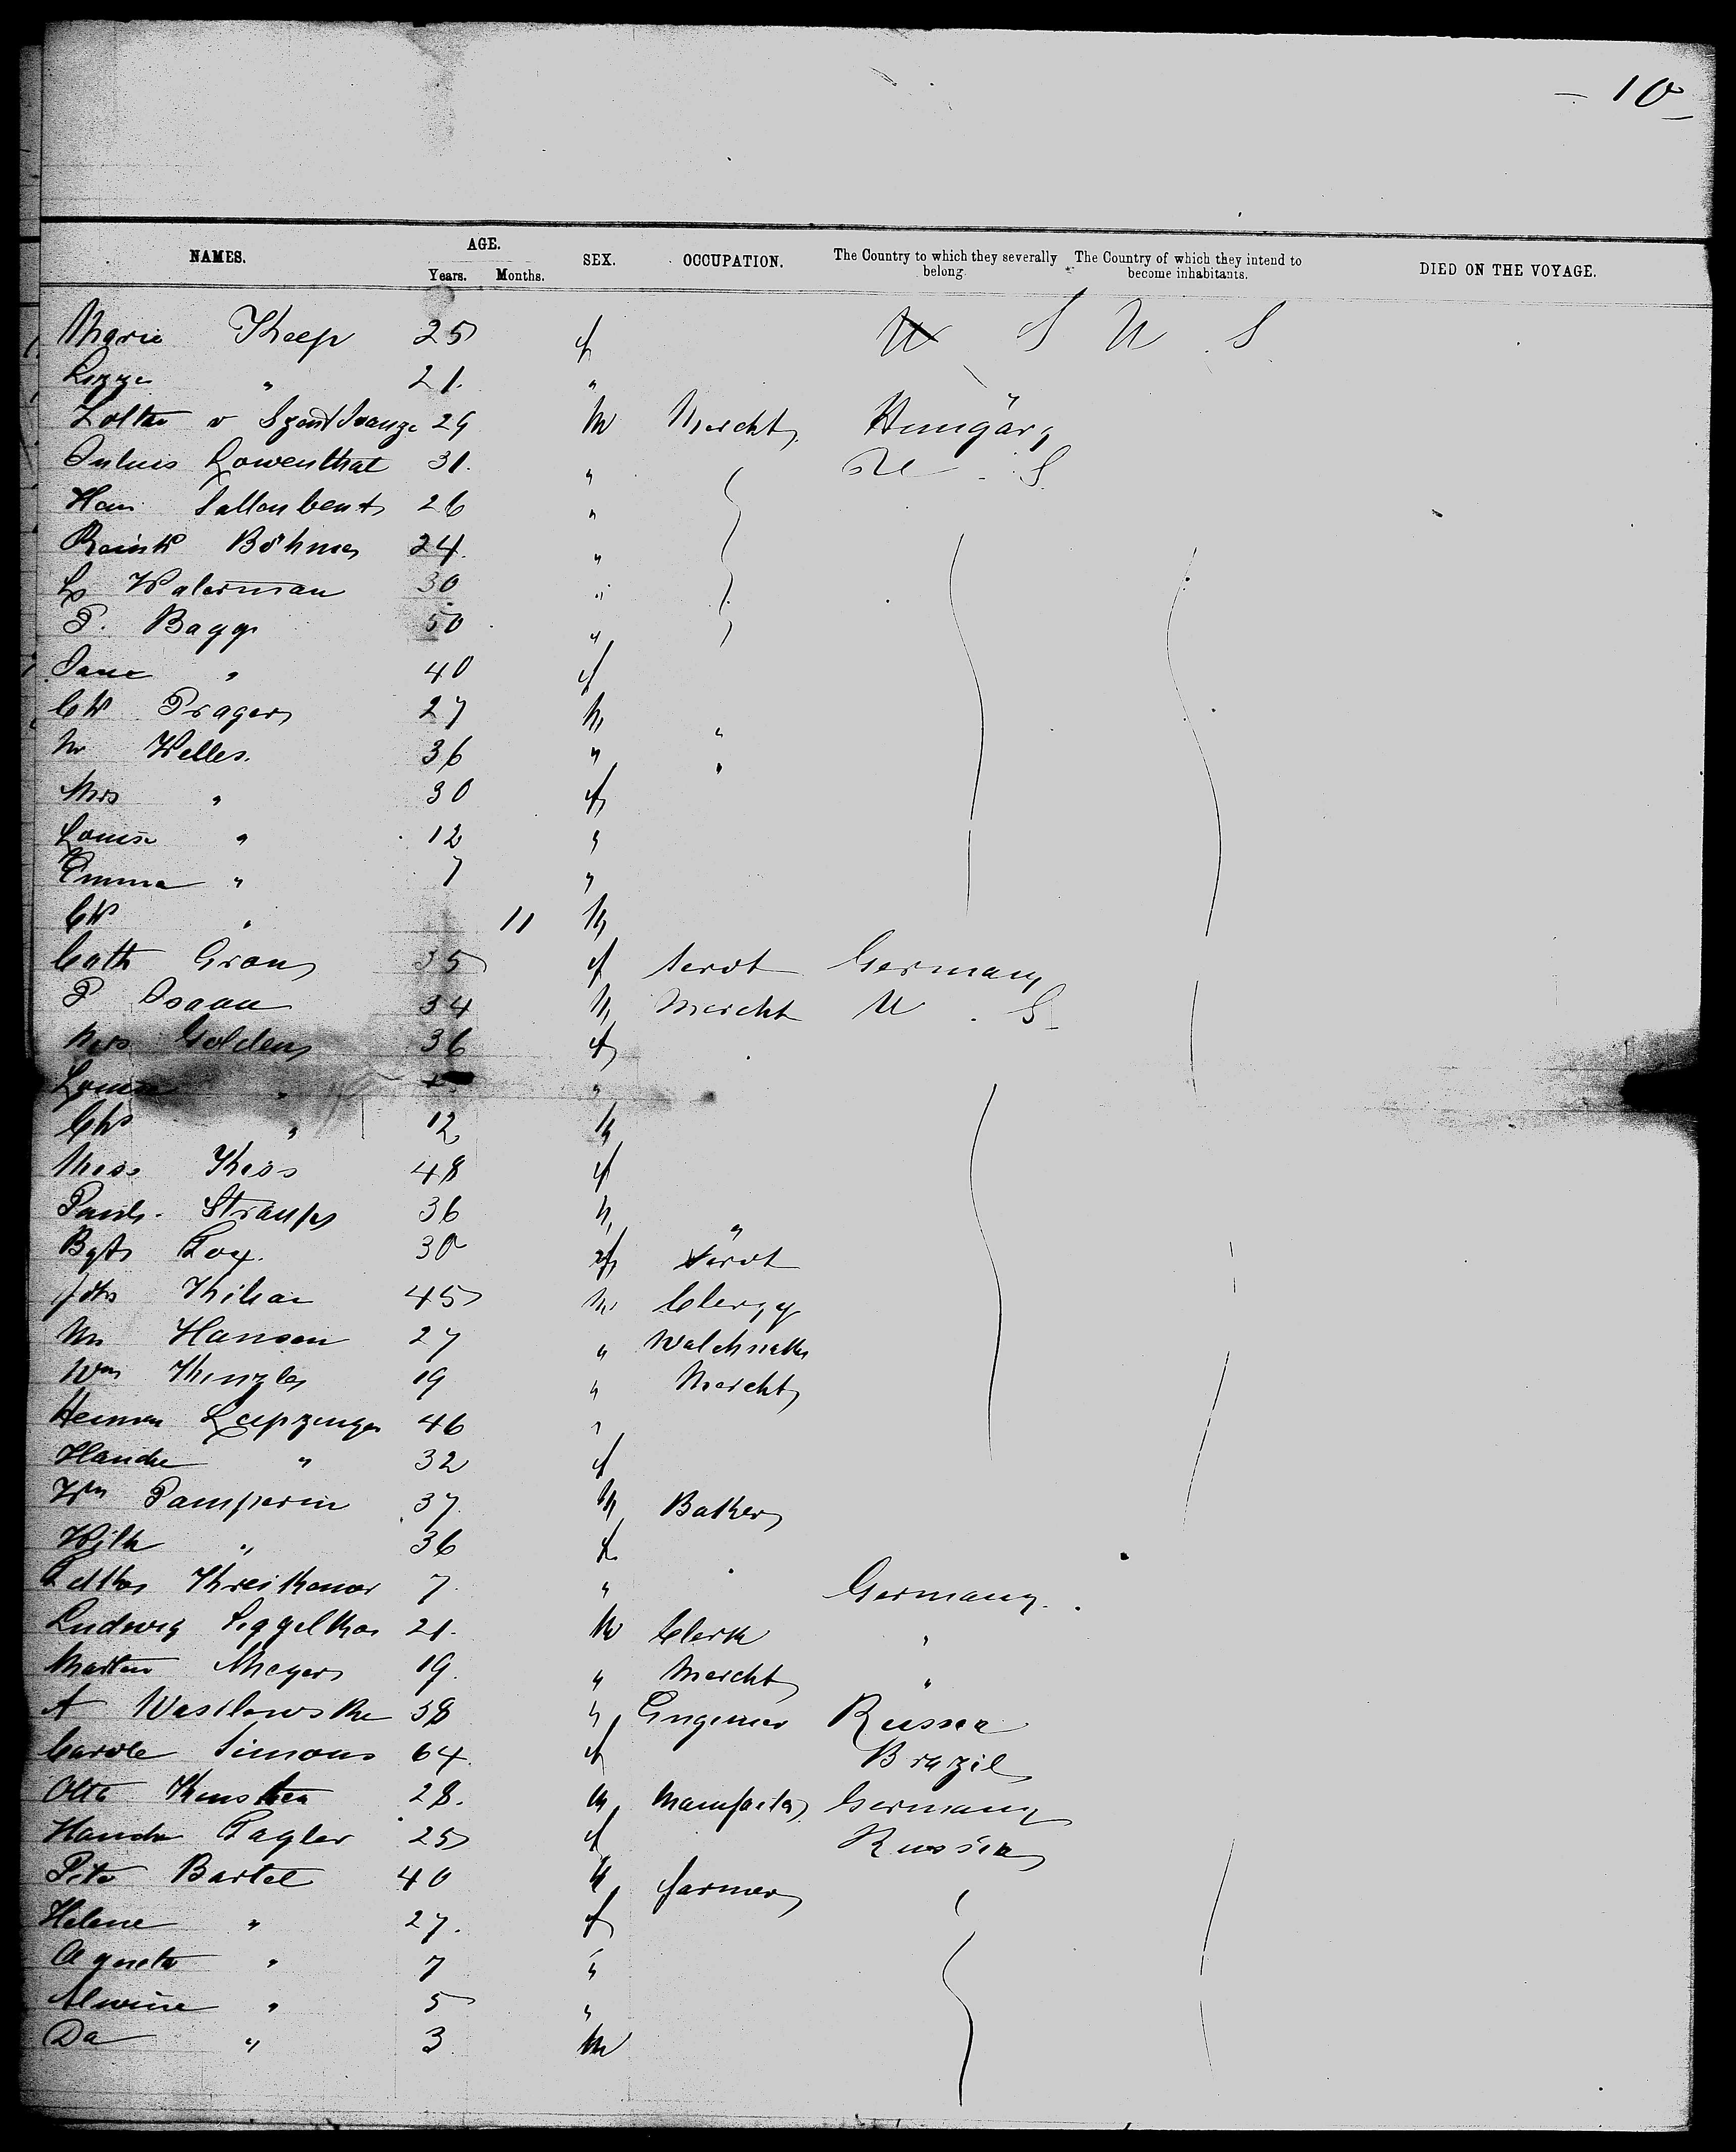 10
NAMES. AGE. Years. Months. SEX. OCCUPATION. The Country to which they severally belong. The Country of which they intend to become inhabitants. DIED ON THE VOYAGE.
Marie Keep 25 f U S U S
Lizzie " 21. "
Zoltan v 29 m Mercht Hungary
Julius Lowenthal 31. " U. S.
26 "
Reinh Böhmer 24. "
30 "
P. Bagge 50 "
Jane " 40 f
Ch Prager 27 m "
M Welles. 36 " "
Mrs " 30 f
Louise " 12 "
Emma " 7 "
Ch " 11 m
Cath Gron 35 f Servt Germany
P Isaac 34 m Mercht U. S
Mrs Golden 36 f
Louise " "
Chs " 12 m
Kiss 48 f
Strauss 36 m "
Foy. 30 f Servt
Kilian 45 m Clergy
M Hansen 27 " Watchmaker
Wm Kinzler 19 " Mercht
Herman Leipzinger 46 "
" 32 f
Wm Pamperin 37 m Baker
Wilh " 36 f
7 " Germany.
Ludwig Siggelkow 21. m Clerk "
Martin Meyer 19. " Mercht "
A Wasilowske 38 " Engineer Russia
Carole Simons 64. f Brazil
Otto 28. m Manufactr Germany
25 f Russia
Peter Bartel 40 m farmer
Helene " 27. f
Agneta " 7 "
Alwine " 5 "
Da " 3 m